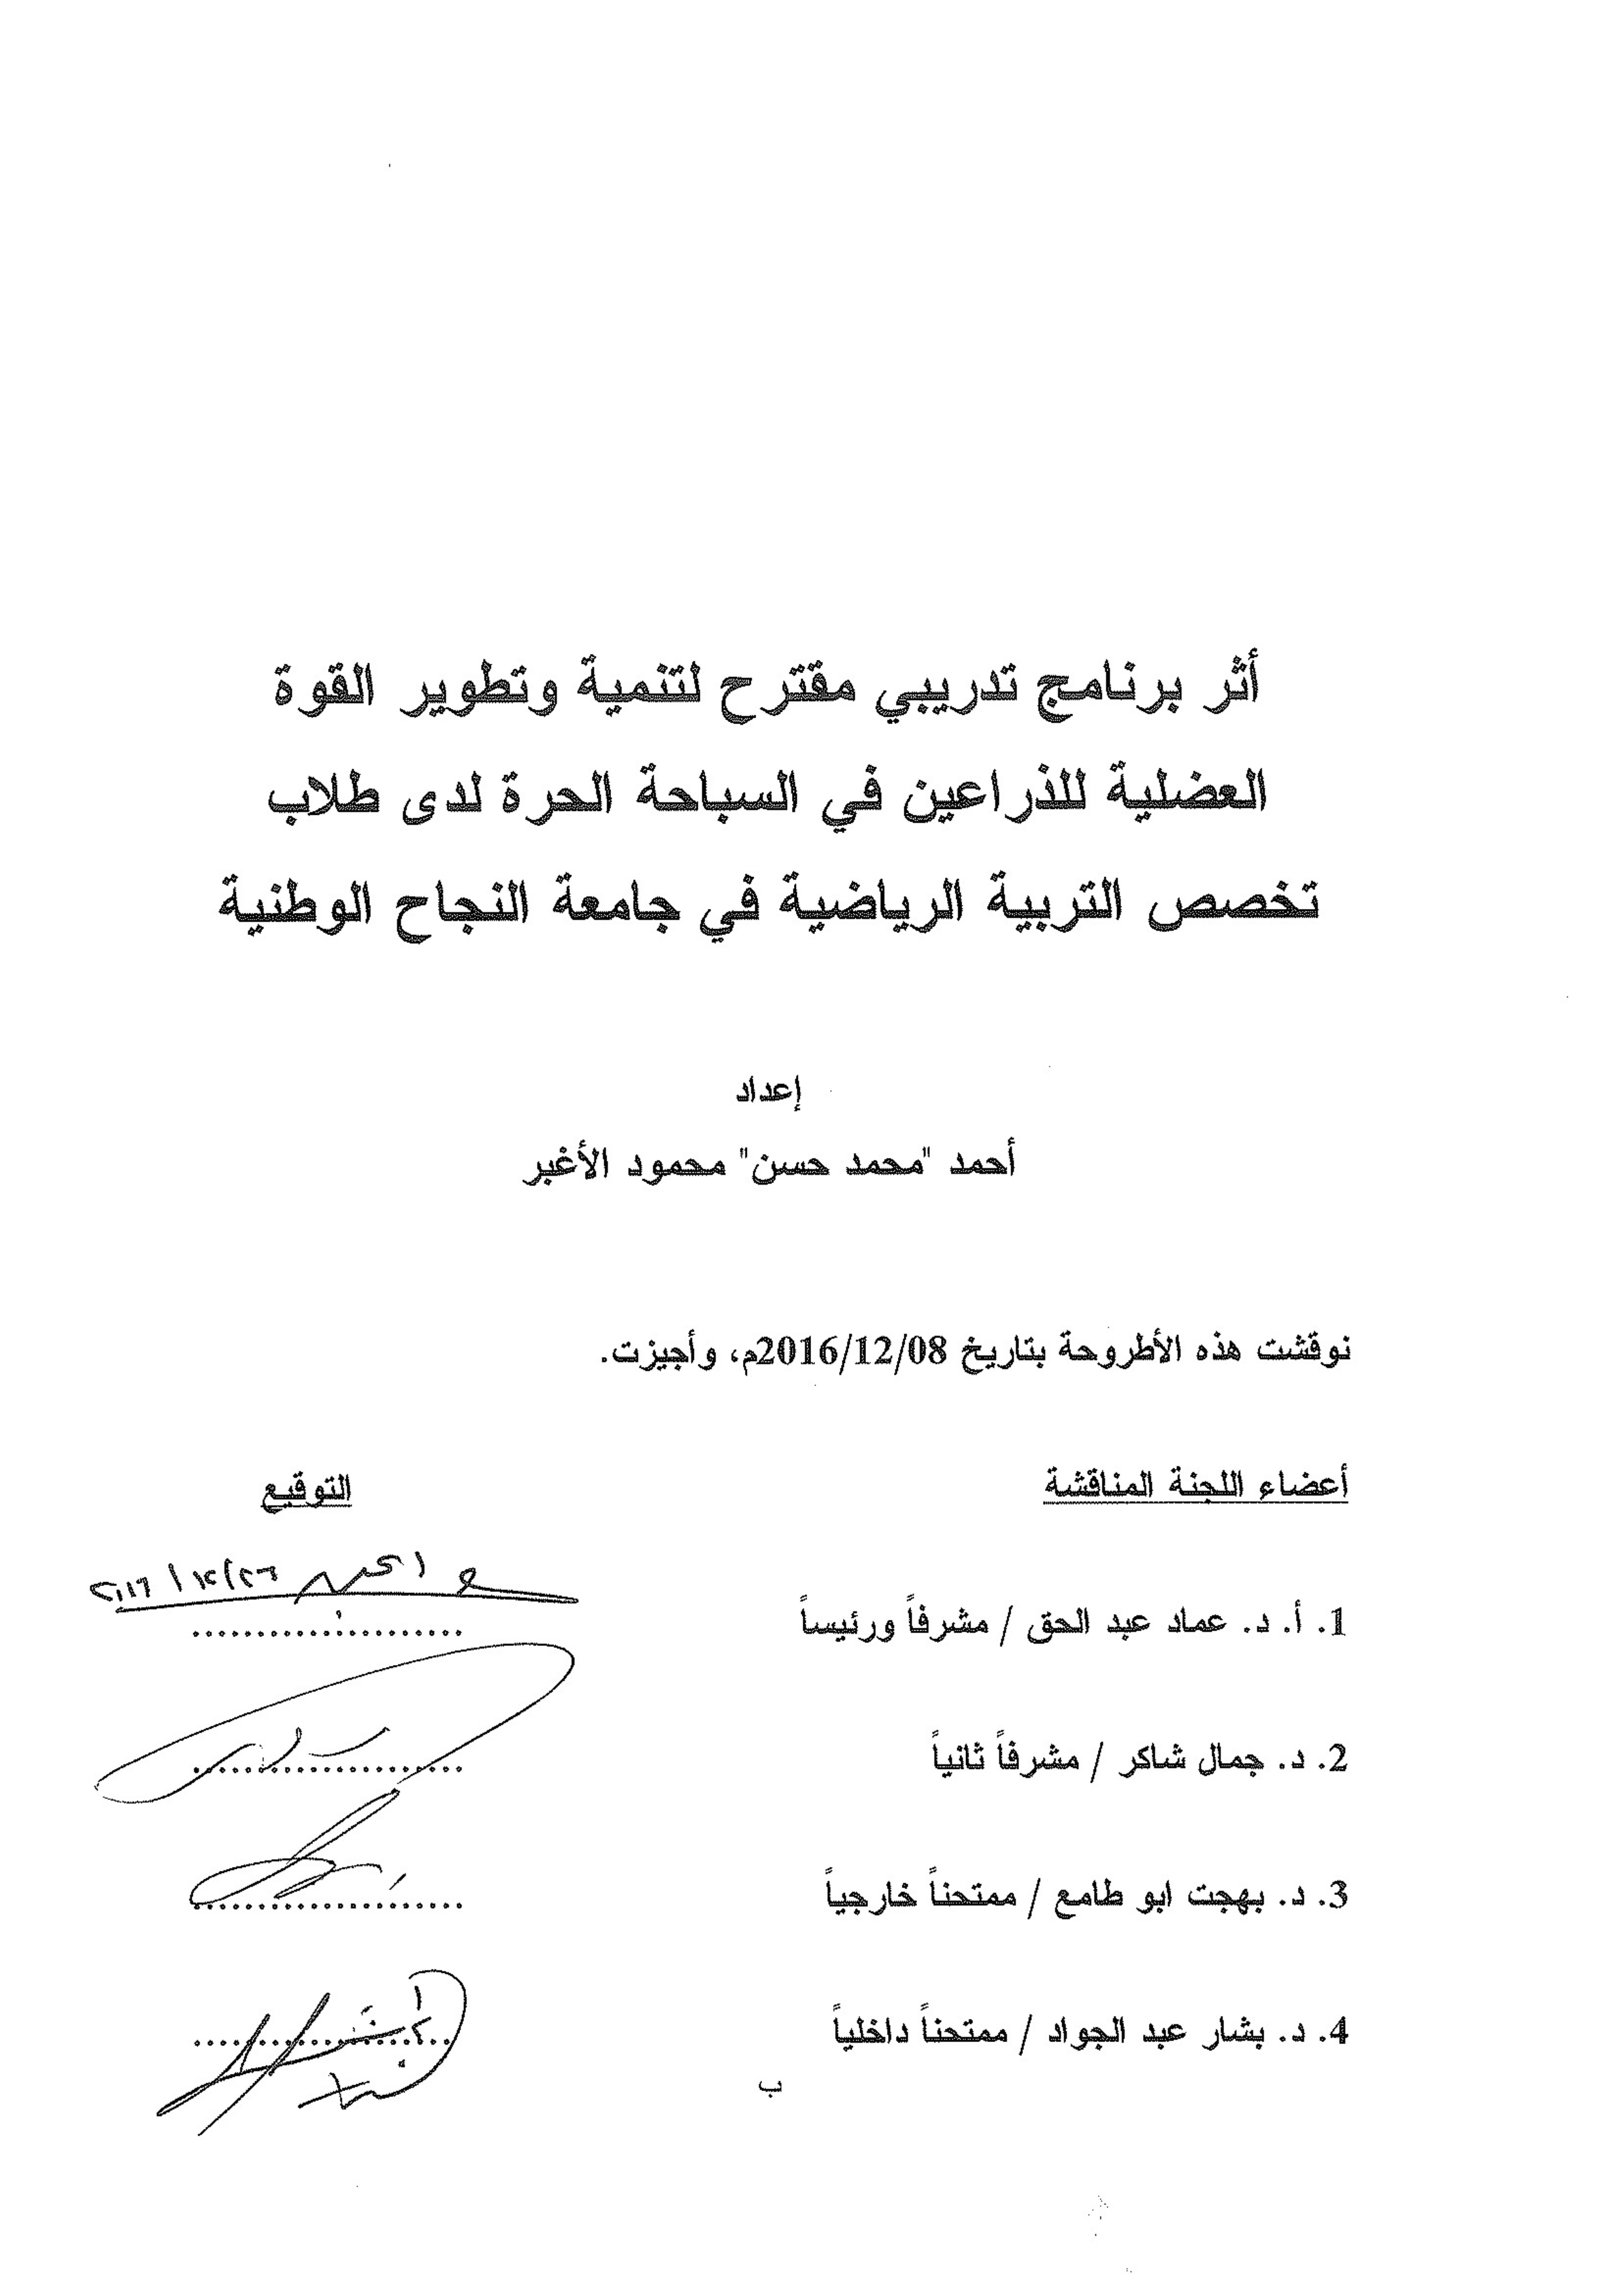 أثر برنامج تدريبي مقترح لتنمية وتطوير القوة
العضلية للذراعين في السباحة الحرة لدى طلاب
تخصص التربية الرياضية في جامعة النجاح الوطنية
إعداد
أحمد "محمد حسن" محمود الأغبر
نوقشت هذه الأطروحة بتاريخ 2016/12/08م، وأجيزت.
أعضاء اللجنة المناقشة
التوقيع
1. أ. د. عماد عبد الحق / مشرفاً ورئيساً
....................
2. د. جمال شاكر / مشرفاً ثانياً
....................
3. د. بهجت ابو طامع / ممتحناً خارجياً
....................
4. د. بشار عبد الجواد / ممتحناً داخلياً
....................
ب